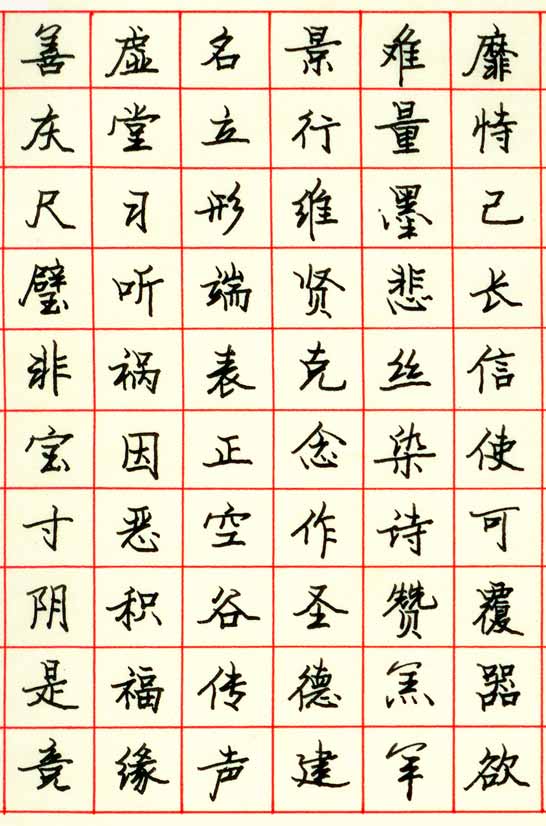 靡恃己长信使可覆器欲
难量墨悲丝染诗赞羔羊
景行维贤克念作圣德建
名立形端表正空谷传声
虚堂习听祸因恶积福缘
善庆尺璧非宝寸阴是竞